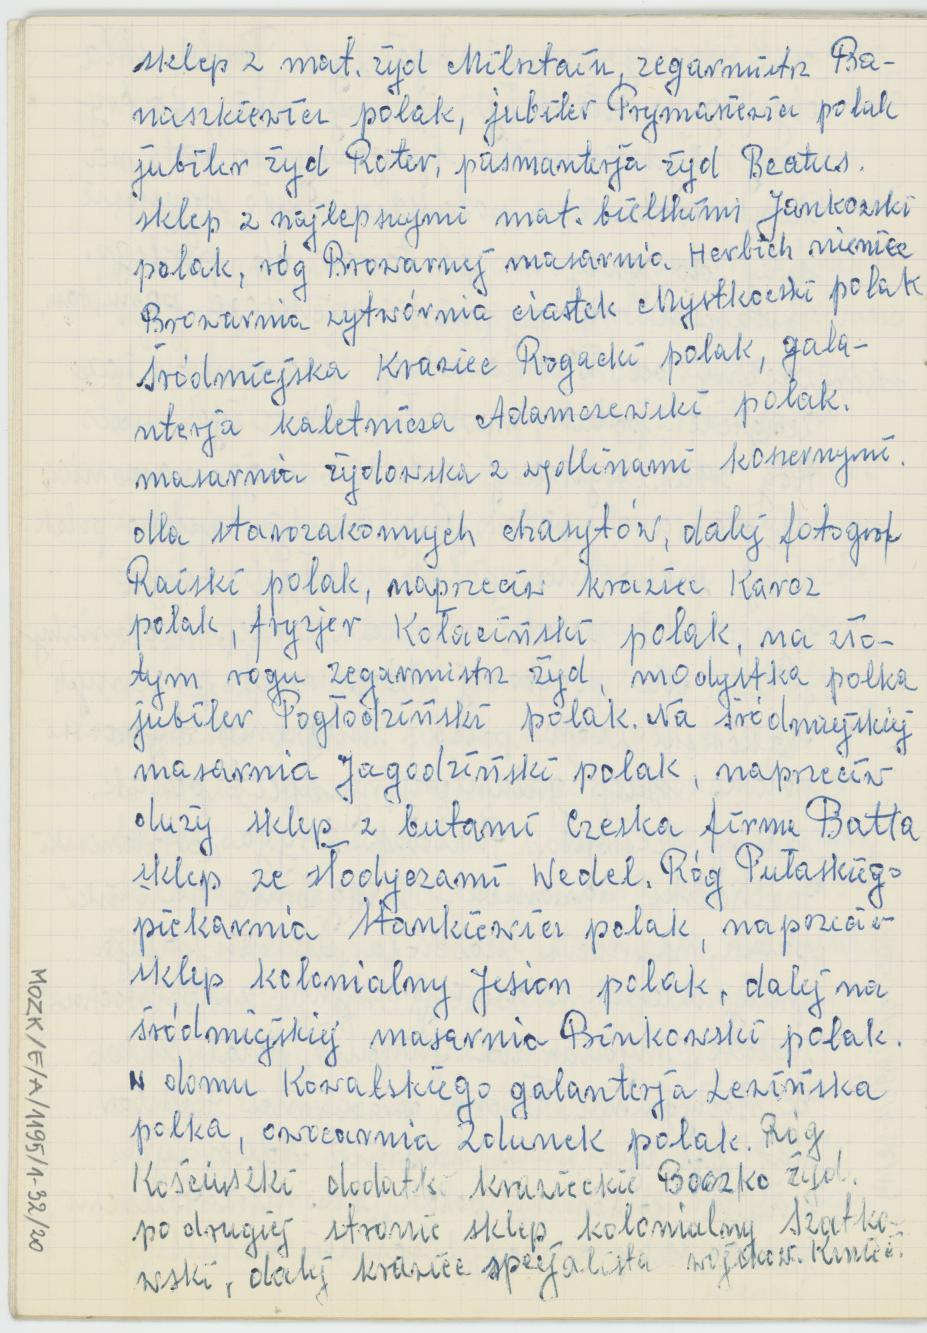 sklep z mat. żyd Milsztain, zegarmistrz Ba-
naszkiewicz polak, jubiler Prymasiewicz polak
jubiler żyd Roter, pasmanterja żyd Beatus.
sklep z najlepszymi mat. bielskimi Jankowski
polak, róg Browarnej masarnia Herbich niemiec
Browarnia wytwórnia ciastek Mystkowski polak
śródmiejska Krawiec Rogacki polak, gala-
nterja kaletnicza Adamczewski polak.
masarnia żydowska z wędlinami koszernymi.
dla starozakonnych chasytów, dalej fotograf
Raiski polak, naprzeciw krawiec Karcz
polak, fryzjer Kołaciński polak, na zło-
tym rogu zegarmistrz żyd, modystka polka
jubiler Pogłodziński polak. Na śródmiejskiej
masarnia Jagodziński polak, naprzeciw
duży sklep z butami Czeska firma Batta
sklep ze słodyczami Wedel. Róg Pułaskiego
piekarnia Stankiewicz polak, naprzeciw
sklep kolonialny Jesion polak, dalej na
śródmiejskiej masarnia Binkowski polak.
W domu Kowalskiego galanterja Lewińska
polka, owocarnia Zdunek polak. Róg
Kościuszki dodatki krawieckie Boczko żyd.
po drugiej stronie sklep kolonialny Szatko-
wski, dalej krawiec specjalista wojskow. Kmieć.
MOZK/E/A/1195/1-32/20